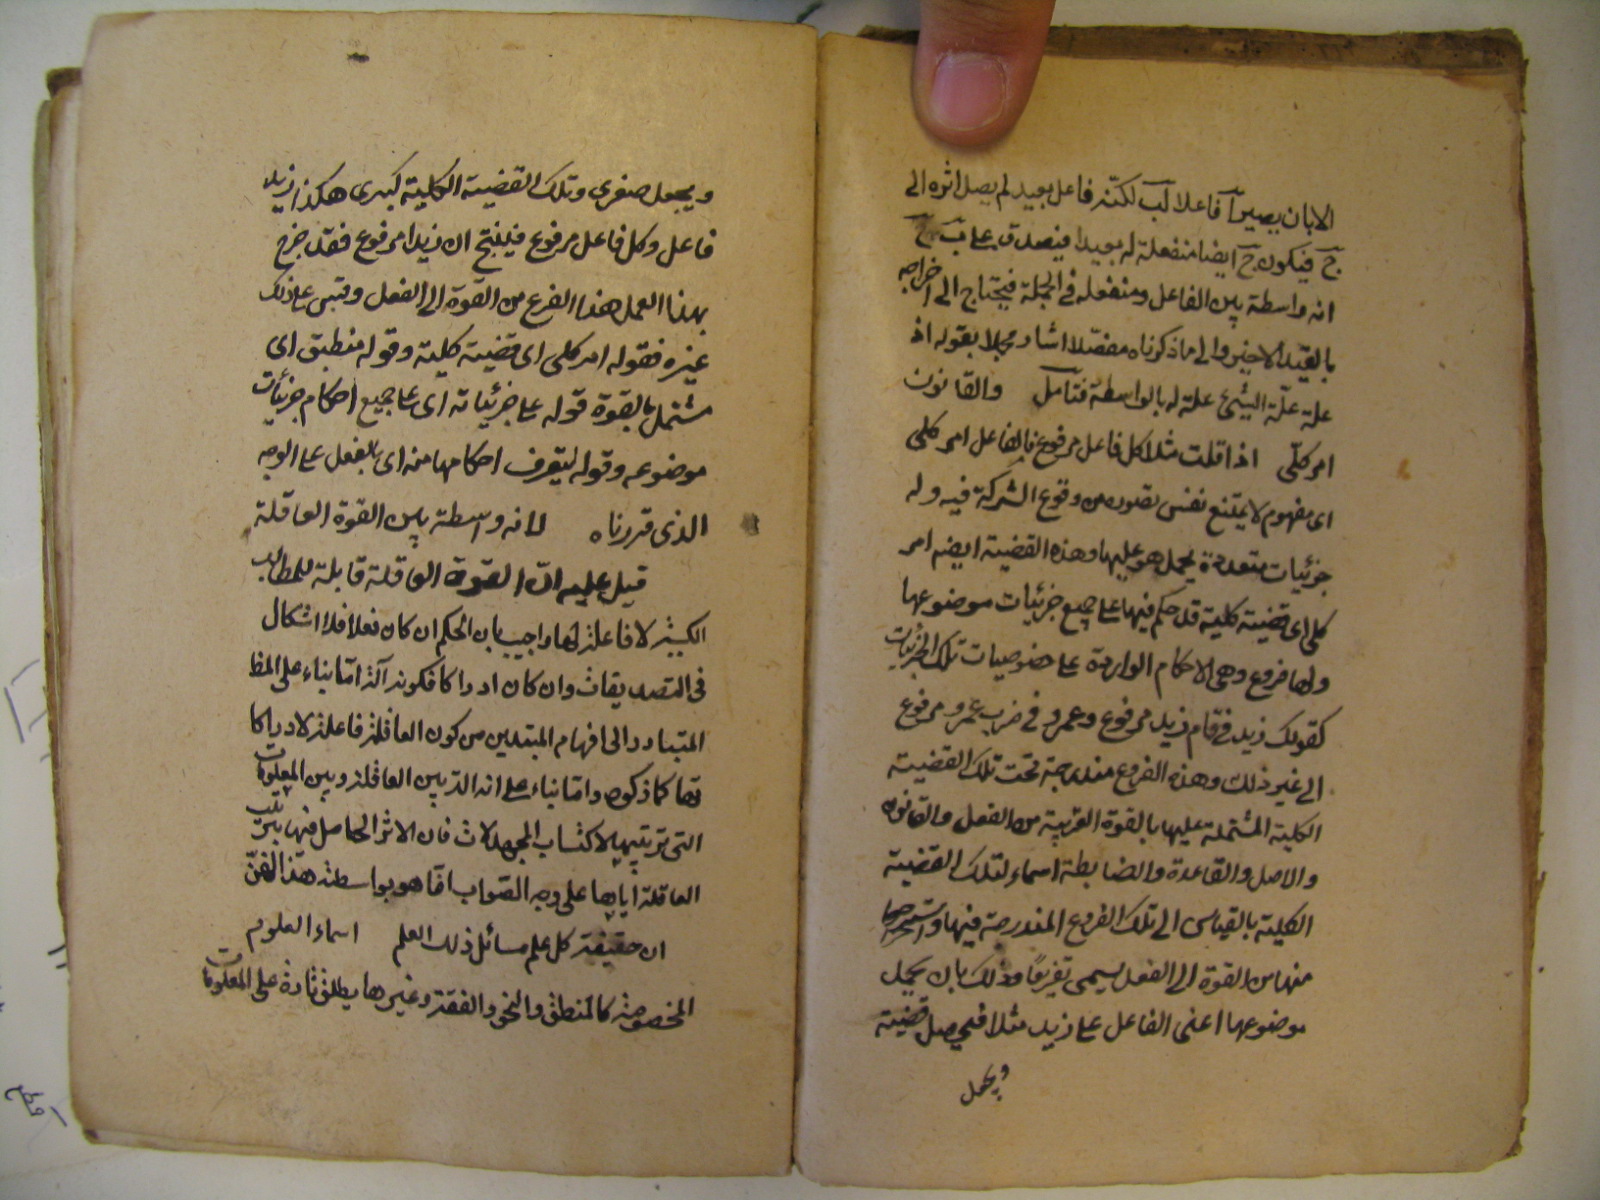 الا بان يصير آ فاعلا لب لكنه فاعل بعيد لم يصل اثره الى
ج فيكون ج ايضا منفعلة له بعيدا فيصدق على ب
انه واسطة بين الفاعل ومنفعله في الجملة فيحتاج الى اخراجه
بالقيد الاخير والى ما ذكرناه مفصلا اشار مجملا بقوله اذ
علة علّة الشئ علة له بالواسطة فتأمل والقانون
امر كلّي اذا قلت مثلا كل فاعل مرفوع فالفاعل امر كلي
اى مفهوم لا يمتنع نفس تصوره من وقوع الشركة فيه وله
جزئيات متعددة يحمل هو عليها وهذه القضية ايضا امر
كلي اى قضية كلية قد حكم فيها على جميع جزئيات موضوعها
ولها فروع وهي الاحكام الواردة على خصوصيات تلك الجزئيات
كقولك زيد في قام زيد مرفوع وعمرو في ضرب عمرو مرفوع
الى غير ذلك وهذه الفروع مندرجة تحت تلك القضية
الكلية المشتملة عليها بالقوة القريبة من الفعل والقانون
والاصل والقاعدة والضابطة اسماء لتلك القضية
الكلية بالقياس الى تلك الفروع المندرجة فيها واستخراجها
منها من القوة الى الفعل يسمى تفريعًا وذلك بان يحمل
موضوعها اعنى الفاعل على زيد مثلا فيحصل قضية
ويجعل
ويجعل صغرى وتلك القضية الكلية كبرى هكذا زيد
فاعل وكل فاعل مرفوع فينتج ان زيدا مرفوع فقد خرج
بهذا العمل هذا الفرع من القوة الى الفعل وقس على ذلك
غيره فقوله امر كلي اى قضية كلية وقوله منطبق اى
مشتمل بالقوة قوله على جزئياته اى على جميع احكام جزئيات
موضوعه وقوله ليتعرف احكامها منه اى بالفعل على الوجه
الذى قررناه لانه واسطة بين القوة العاقلة
قيل عليه انّ القوة العاقلة قابلة للمطالب
الكثير لا فاعلة لها واجيب بان الحكم ان كان فعلا فلا اشكال
فى التصديقات وان كان ادراكا فكونه آلة اما بناء على الظ
المتبادر الى افهام المبتدين من كون العاقلة فاعلة لادراكا
تها كما ذكره واما بناء على انه الة بين العاقلة وبين المعلومات
التى ترتبها لاكتساب المجهولات فان الاثر الحاصل فيها بترتيب
العاقلة اياها على وجه الصواب انما هو بواسطة هذا الفنّ
ان حقيقة كل علم مسائل ذلك العلم اسماء العلوم
المخصوصة كالمنطق والنحو والفقه وغيرها يطلق تارة على المعلومات